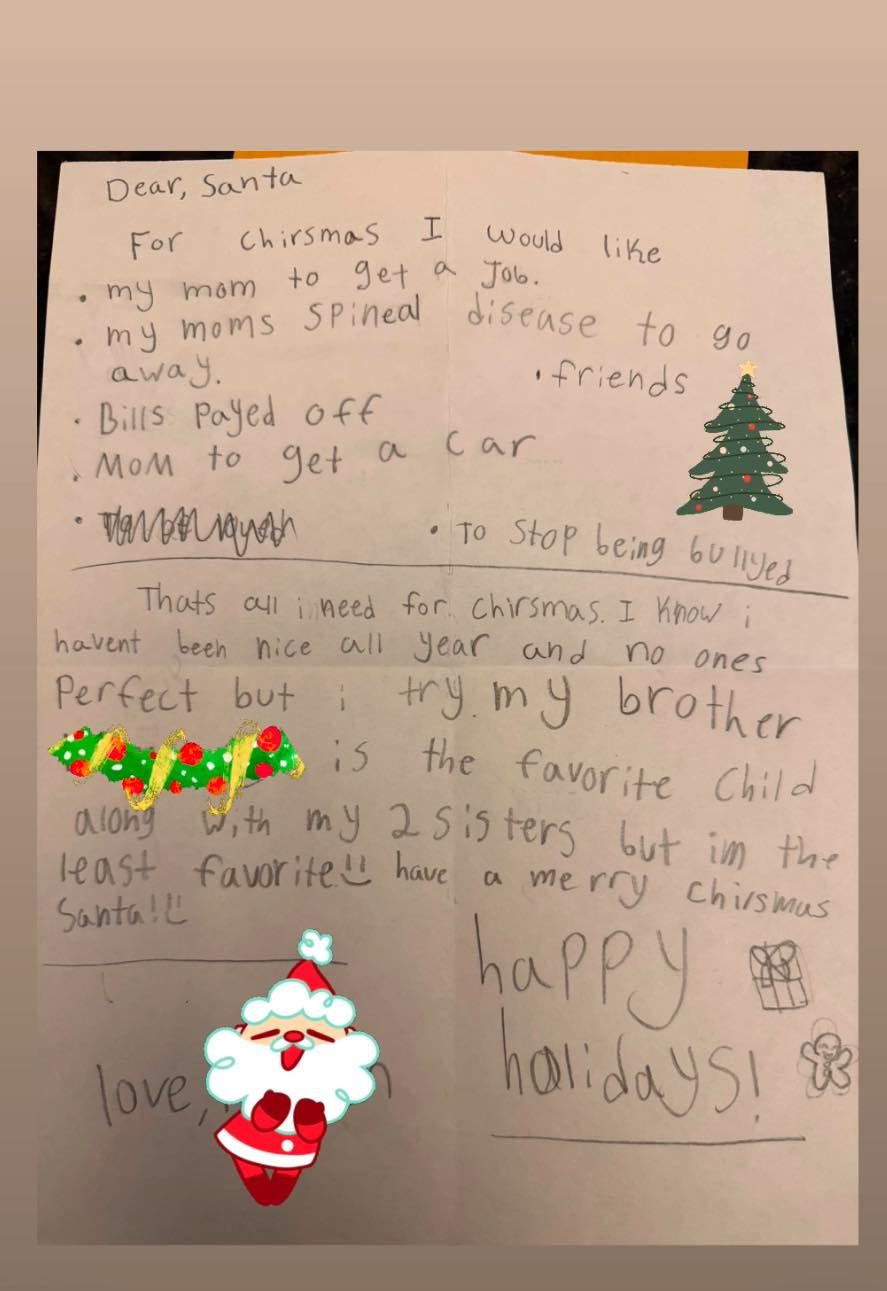 Dear, Santa
For Chirsmas I would like
• my mom to get a Job.
• my moms spineal disease to go
away.
• friends
• Bills payed off
• Mom to get a car
• To stop being bullyed
Thats all i need for chirsmas. I know i
havent been nice all year and no ones
Perfect but i try. my brother
is the favorite child
along with my 2 sisters but im the
least favorite!! have a merry chirsmas
Santa!!
happy
holidays!
love,